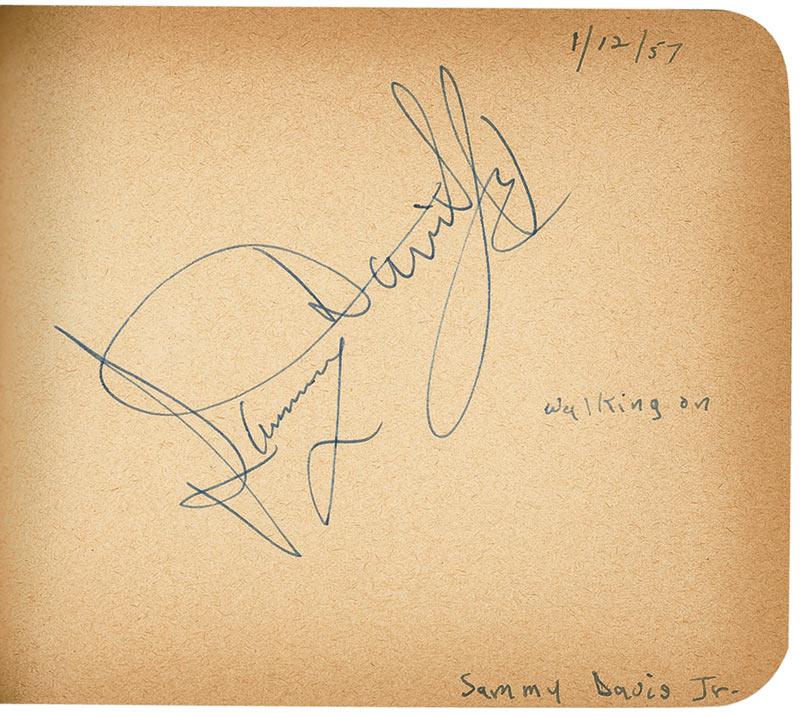 1/12/57
Sammy Davis Jr
walking on
Sammy Davis Jr.